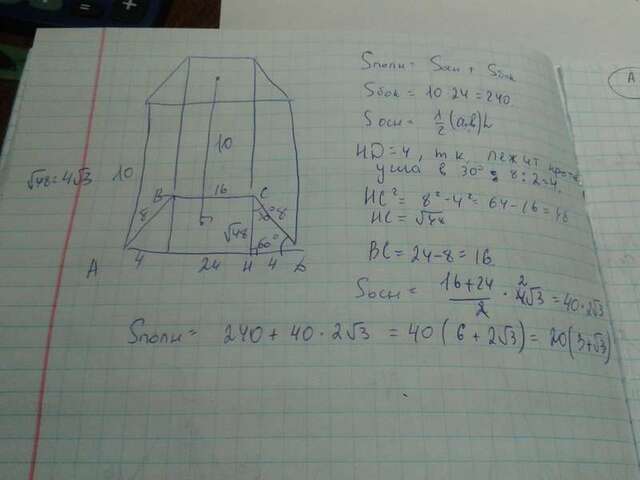 Sполн = Sосн + Sбок
Sбок = 10·24 = 240
Sосн = 1/2 (a+b)h
HD = 4, т.к. лежит против
угла в 30° 8:2=4.
HC² = 8² - 4² = 64 - 16 = 48
HC = √48
BC = 24 - 8 = 16
Sосн = (16+24)/2 · 4√3 = 40·2√3
2
Sполн = 240 + 40·2√3 = 40(6+2√3) = 20(3+√3)
√48 = 4√3
10
10
B
16
C
8
30°
8
√48
60°
A
4
24
H
4
D
A